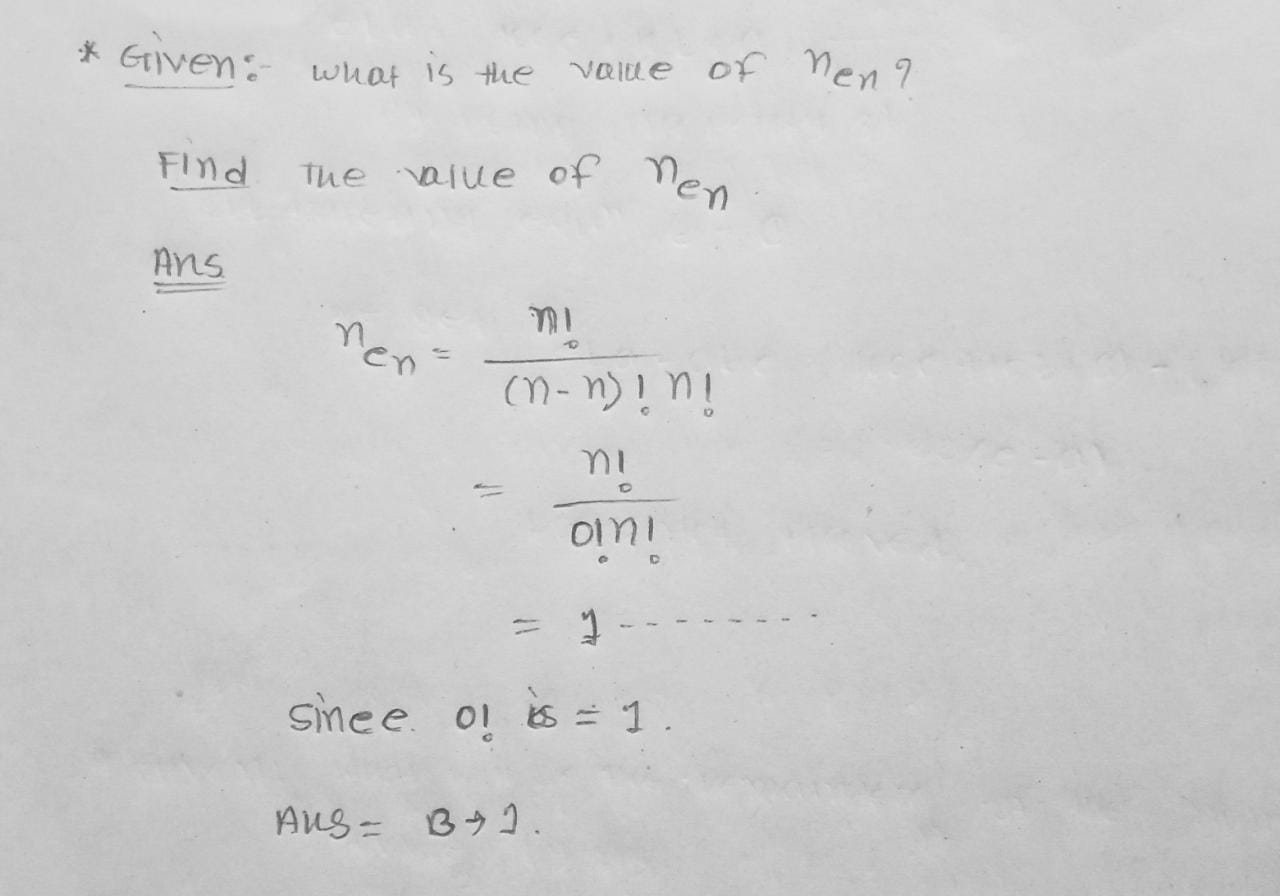 * Given:- what is the value of ⁿcₙ?
Find The value of ⁿcₙ.
Ans
ⁿcₙ = n! / (n-n)! n!
= n! / 0!n!
= 1 --------
Since. 0! is = 1.
Ans = B→1.